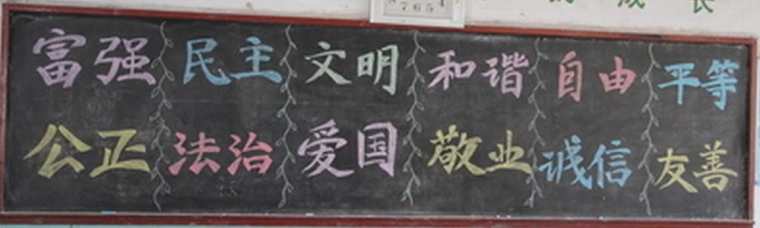 富强 民主 文明 和谐 自由 平等
公正 法治 爱国 敬业 诚信 友善